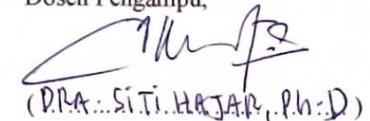 Dosen Pengampu,
(DRA. SITI HAJAR, Ph.D)